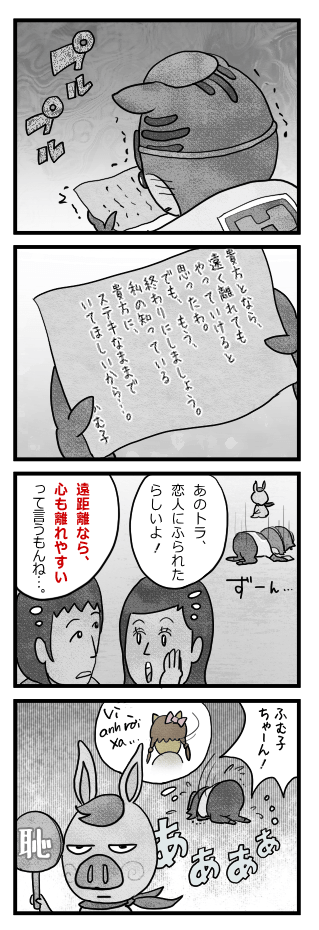 プル
プル
貴方となら、
遠く離れても
やっていけると
思ったわ。
でも、もう、
終わりにしましょう。
私の知っている
貴方に、
ステキなままで
いてほしいから…。
ふむ子
ずーん…
あのトラ、
恋人にふられた
らしいよ!
遠距離なら、
心も離れやすい
って言うもんね…。
ふむ子
ちゃーん!
Vì
anh rời
xa...
ああああ
恥